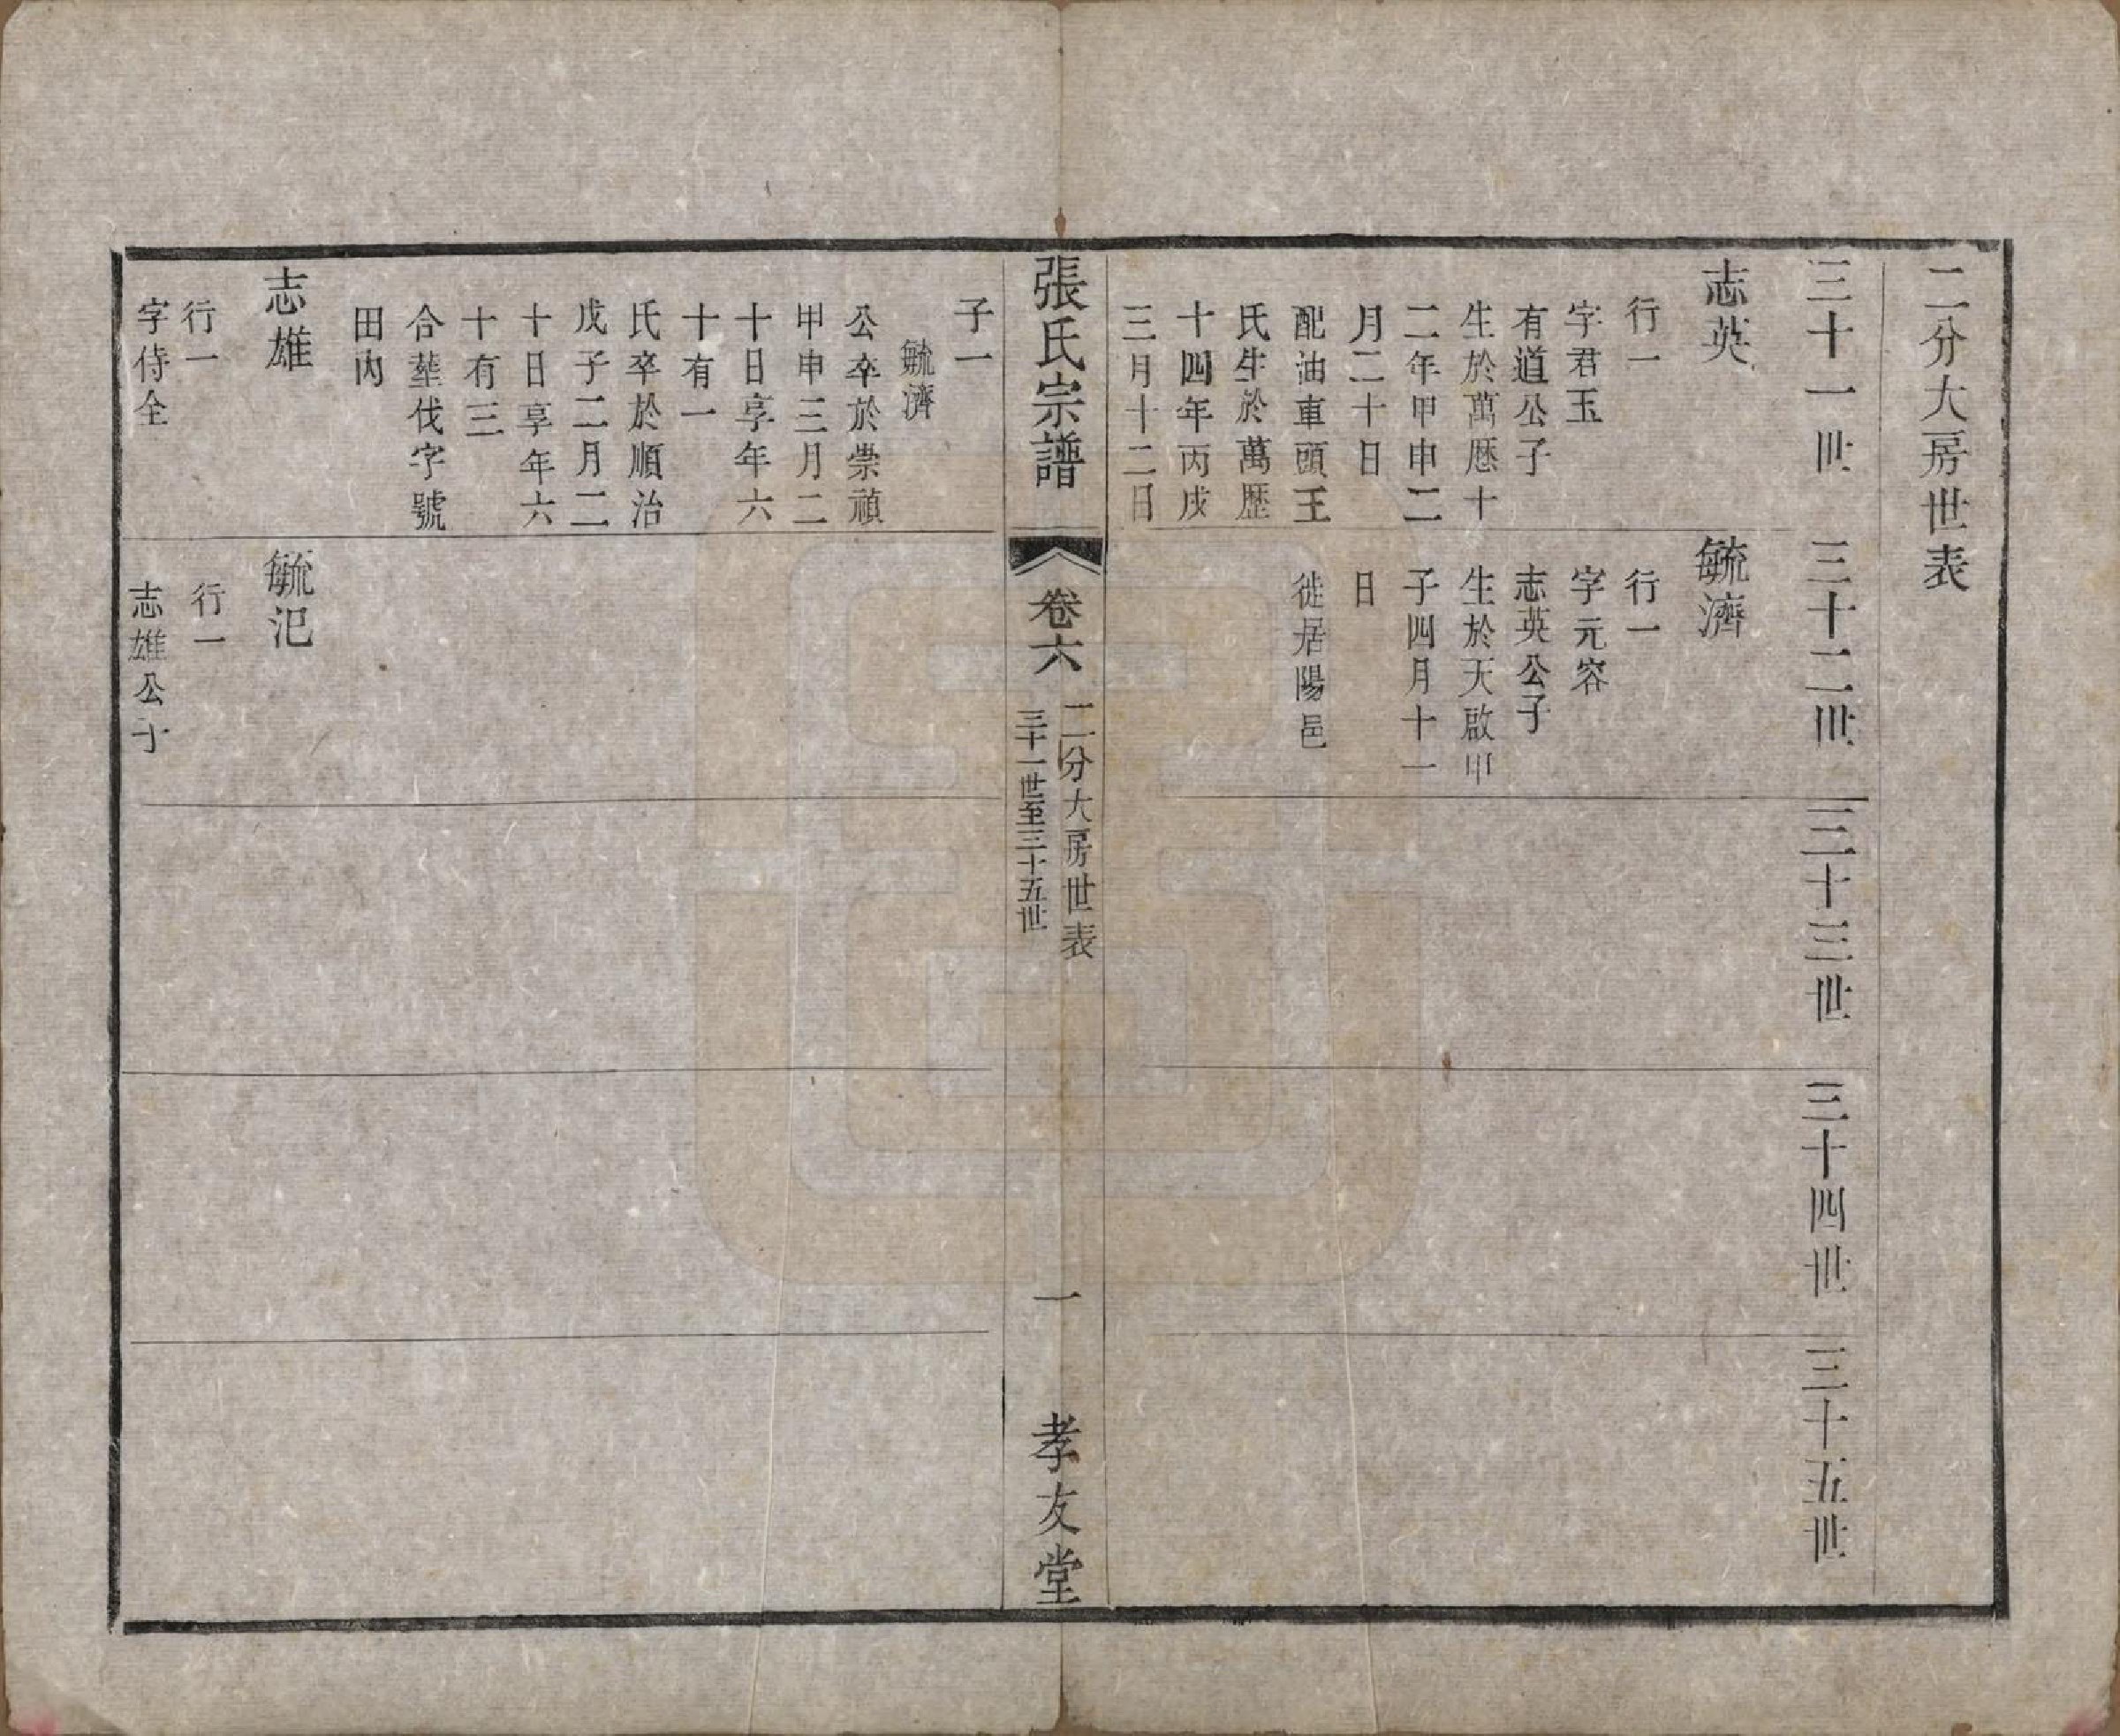 二分大房世表
三十一世
三十二世
三十三世
三十四世
三十五世
志英
行一
字君玉
有道公子
生於萬厯十
二年甲申二
月二十日
配油車頭王
氏生於萬歷
十四年丙戌
三月十二日
毓濟
行一
字元容
志英公子
生於天啟甲
子四月十一
日
徙居陽邑
張氏宗譜
卷六
二分大房世表
三十一世至三十五世
一
孝友堂
子一
毓濟
公卒於崇禎
甲申三月二
十日享年六
十有一
氏卒於順治
戊子二月二
十日享年六
十有三
合塟伐字號
田內
志雄
行一
字侍全
毓汜
行一
志雄公子